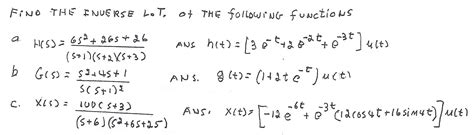 FIND THE INVERSE L.T. of THE following functions
a. H(s) = (6s² + 26s + 26) / ((s+1)(s+2)(s+3)) ANS h(t) = [3e^-t + 2e^-2t + e^-3t] u(t)
b G(s) = (s² + 4s + 1) / (s(s+1)²) ANS. g(t) = (1 + 2te^-t) u(t)
c. X(s) = 100(s+3) / ((s+6)(s² + 6s + 25)) ANS. x(t) = [-12e^-6t + e^-3t (12cos4t + 16sin4t)] u(t)